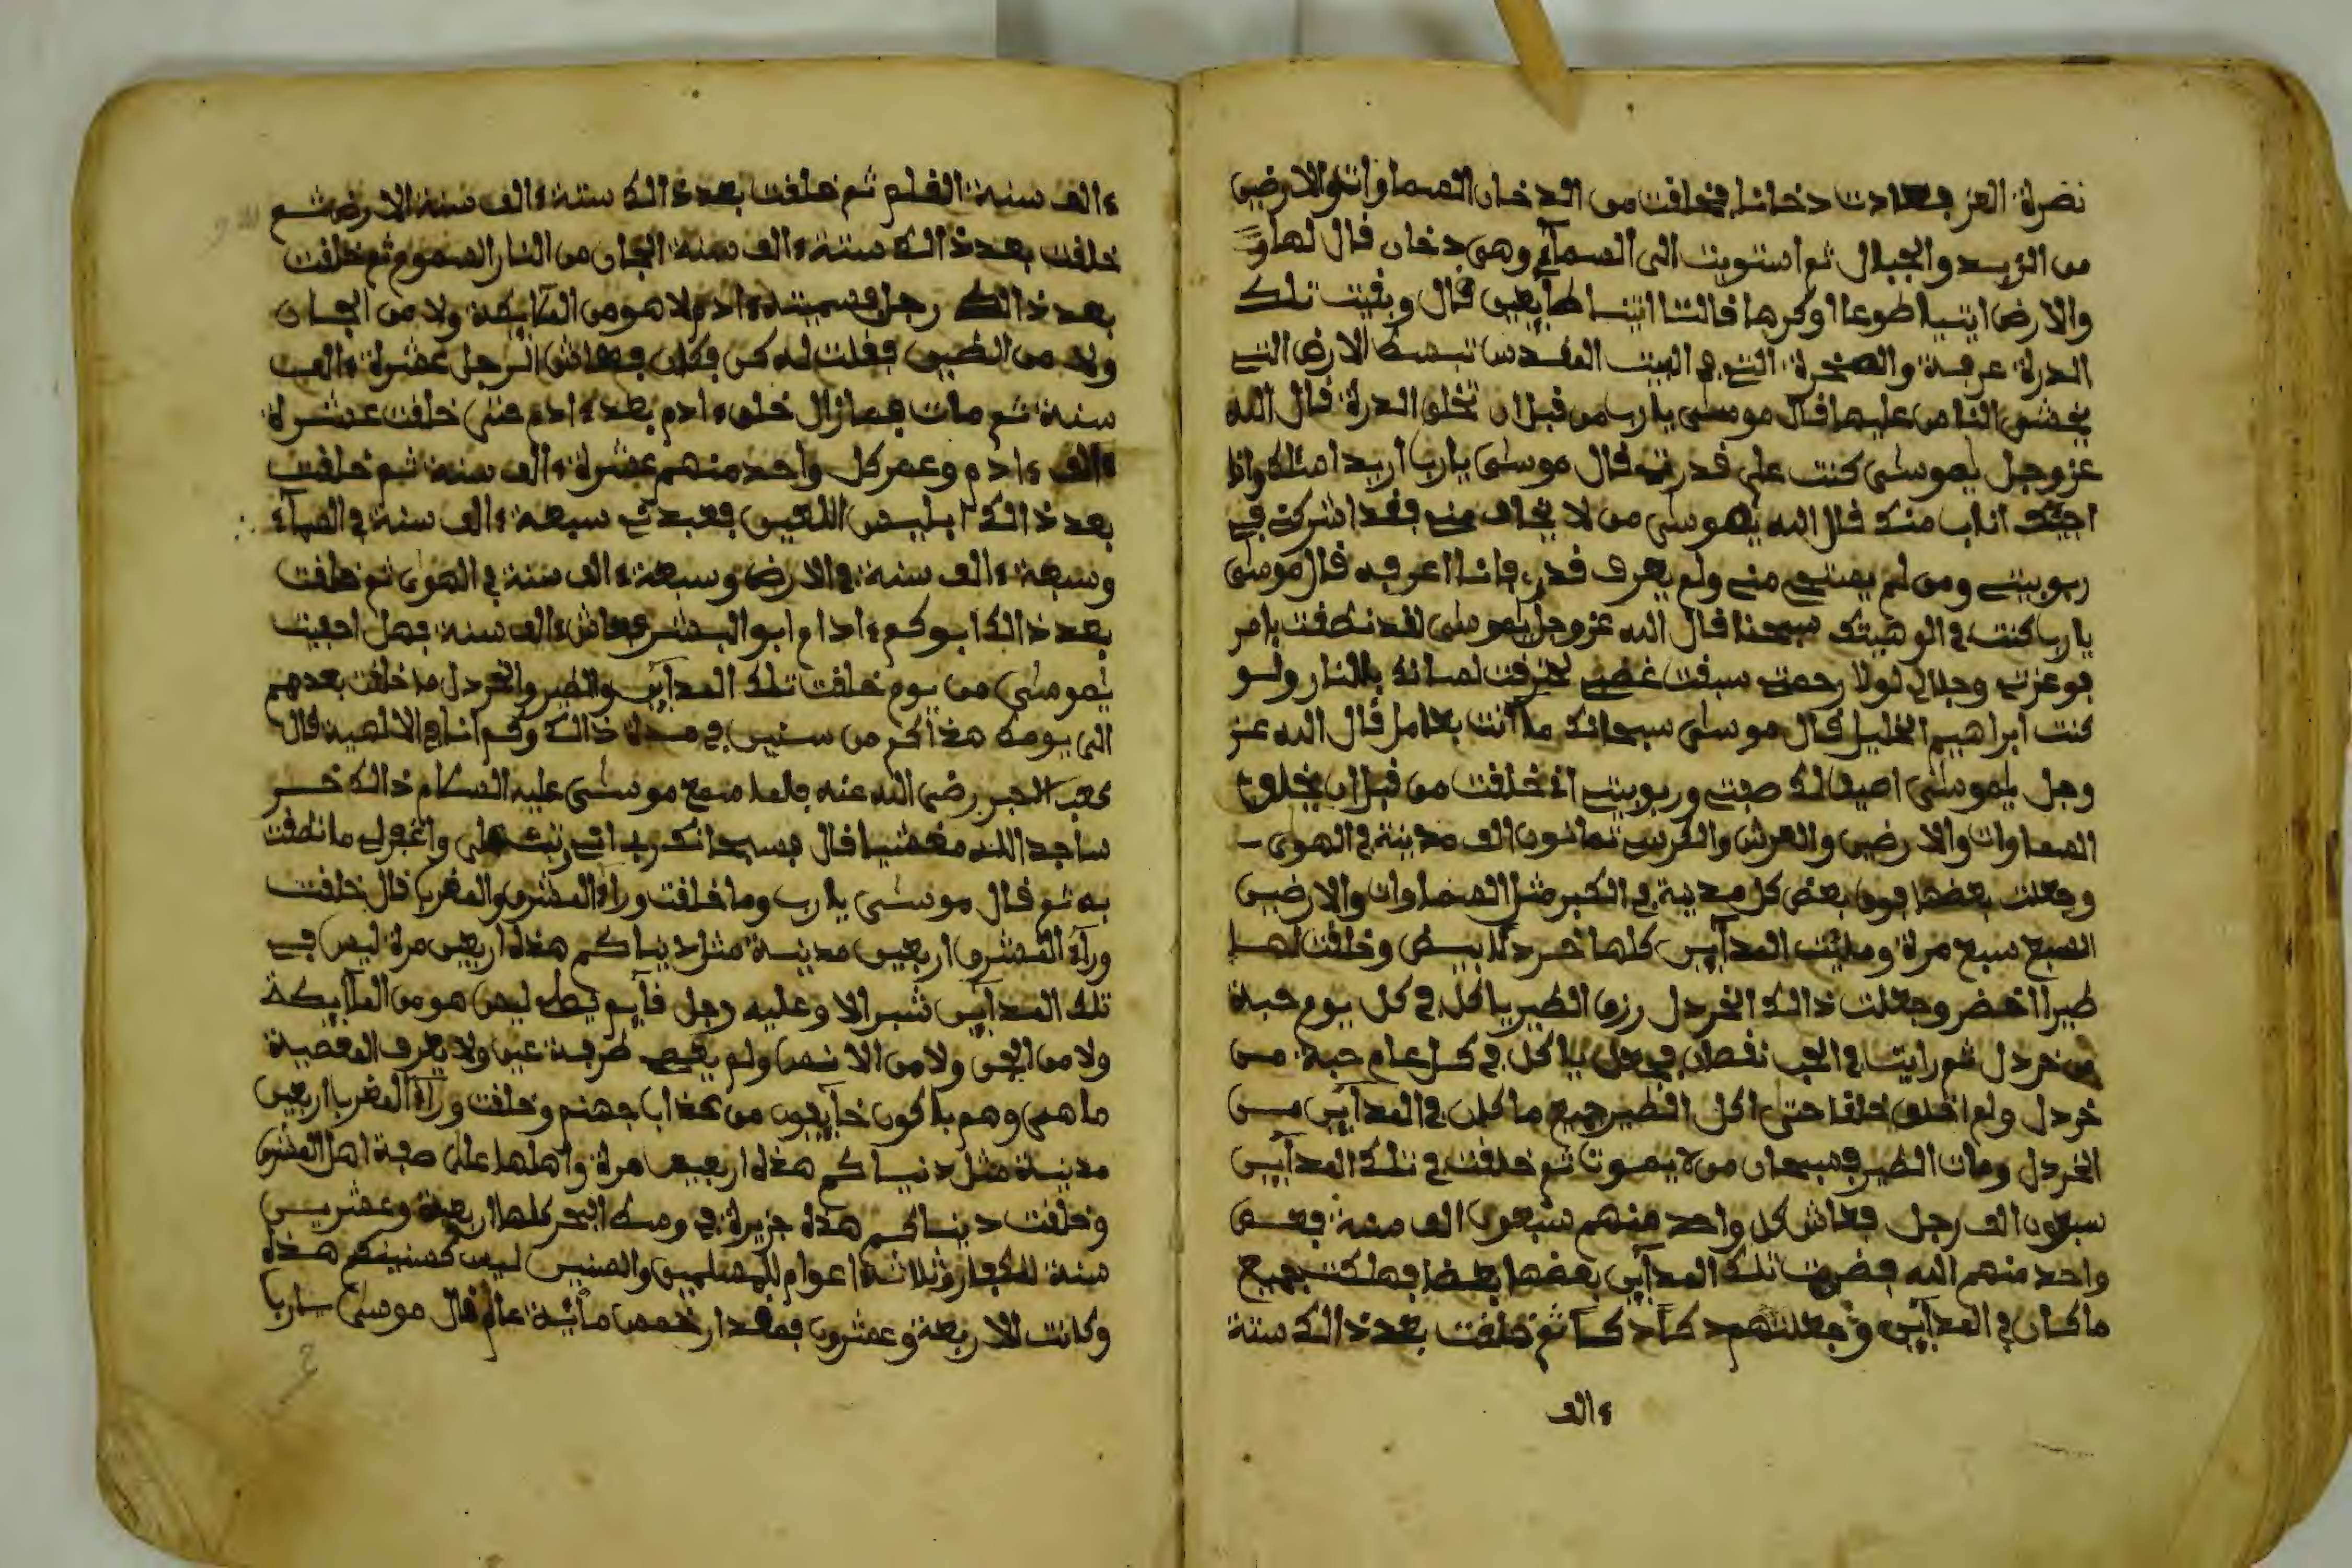 نضرة العز فعادت دخانا فخلقت من الدخان السماوات والارضين
من الزبد والجبال ثم استويت الى السمآء وهي دخان قال لها و
والارض ايتيا طوعا او كرها قالتا اتينا طآيعين قال وبقيت تلك
الدرة عرفة والصخرة التي في البيت المقدس تبسط الارض التي
يحشر الناس عليها قال موسى يا رب من قبل ان تخلق الدرة قال الله
عز وجل يموسى كنت على قدرتي قال موسى يا رب اريد امثلك وانا
منك قال الله يموسى من لا يخاف مني فقد اشرك في
ربوبيتي ومن لم يستحي مني ولم يعرف قدري فانا اعرفه قال موسى
يا رب كنت في الوهيتك سبحنا قال الله عز وجل يموسى لقد نطقت بامر
فوعزتي وجلالي لولا رحمتي سبقت غضبي لحرقت لسانك بالنار ولو
كنت ابراهيم الخليل قال موسى سبحانك ما انت بعامل قال الله عز
وجل يموسى اصف لك صفتي وربوبيتي اني خلقت من قبل ان يخلق
السماوات والارضين والعرش والكرسي ثمانون الف مدينة في الهوى
وجعلت بعضها فوق بعض كل مدينة في الكبر مثل السماوات والارضين
السبع سبع مرة ومليت المدآين كلها خردلا بيض وخلقت لها
طيرا اخضر وجعلت ذالك الخردل رزق الطير ياكل في كل يوم حبة
من خردل ثم رايت في الحب نقصان في ياكل في كل عام حبة من
خردل ولم اخلق خلقا حتى اكل الطير جميع ما كان في المدآين من
الخردل ومات الطير فسبحان من لا يموت ثم خلقت في تلك المدآين
سبعون الف رجل فعاش كل واحد منهم سبعون الف سنة فعصى
واحد منهم الله فضربت تلك المدآين بعضها بعضا فهلكت جميع
ما كان في المدآين وجعلتهم دكا دكا ثم خلقت بعد ذالك ستة
ءالف
ءالف سنة القلم ثم خلقت بعد ذالك ستة ءالف سنة الارض ثم
خلقت بعد ذالك ستة ءالف سنة الجان من النار السموم ثم خلقت
بعد ذالك رجل فسميته ءادم لا هو من الملآيكة ولا من الجان
ولا من الطين فقلت له كن فكان فعاش الرجل عشرة ءالف
سنة ثم مات فما زال خلق ءادم بعد ءادم حتى خلقت عشرة
ءالف ءادم وعمر كل واحد منهم عشرة ءالف سنة ثم خلقت
بعد ذالك ابليس اللعين فعبدني سبعة ءالف سنة في السمآء
وسبعة ءالف سنة في الارض وسبعة ءالف سنة في الهوى ثم خلقت
بعد ذالك ابوكم ءادم ابو البشر فعاش ءالف سنة فهل احصيت
يموسى من يوم خلقت تلك المدآين والطير والخردل ما خلقت بعدهم
الى يومك هذا كم من سنين في مدة ذالك وكم انا في الالهية قال
كعب الحبر رضي الله عنه فلما سمع موسى عليه السلام ذالك خر
ساجدا لله مغشيا قال فسبحانك رب اني تبت علي واغفر لي ما نطقت
به ثم قال موسى يا رب وما خلقت ورآء المشرق والمغرب قال خلقت
ورآء المشرق اربعين مدينة مثل دنياكم هذه اربعين مرة ليس في
تلك المدآين شبر الا وعليه رجل قآيم ليس هو من الملآيكة
ولا من الجن ولا من الانس ولم يعص طرفة عين ولا يعرف المعصية
ما هي وهم باكون خآيفون من عذاب جهنم وخلقت ورآء المغرب اربعين
مدينة مثل دنياكم هذه اربعين مرة واهلها على صفة اهل المشرق
وخلقت دنياكم هذه جزيرة في وسط البحر كلها اربعة وعشرين
سنة للكفار وثلاثة اعوام للمسلمين والسنين ليس كسنينكم هذه
وكانت الاربعة وعشرون فمقدار خمس مائة عام قال موسى يارب